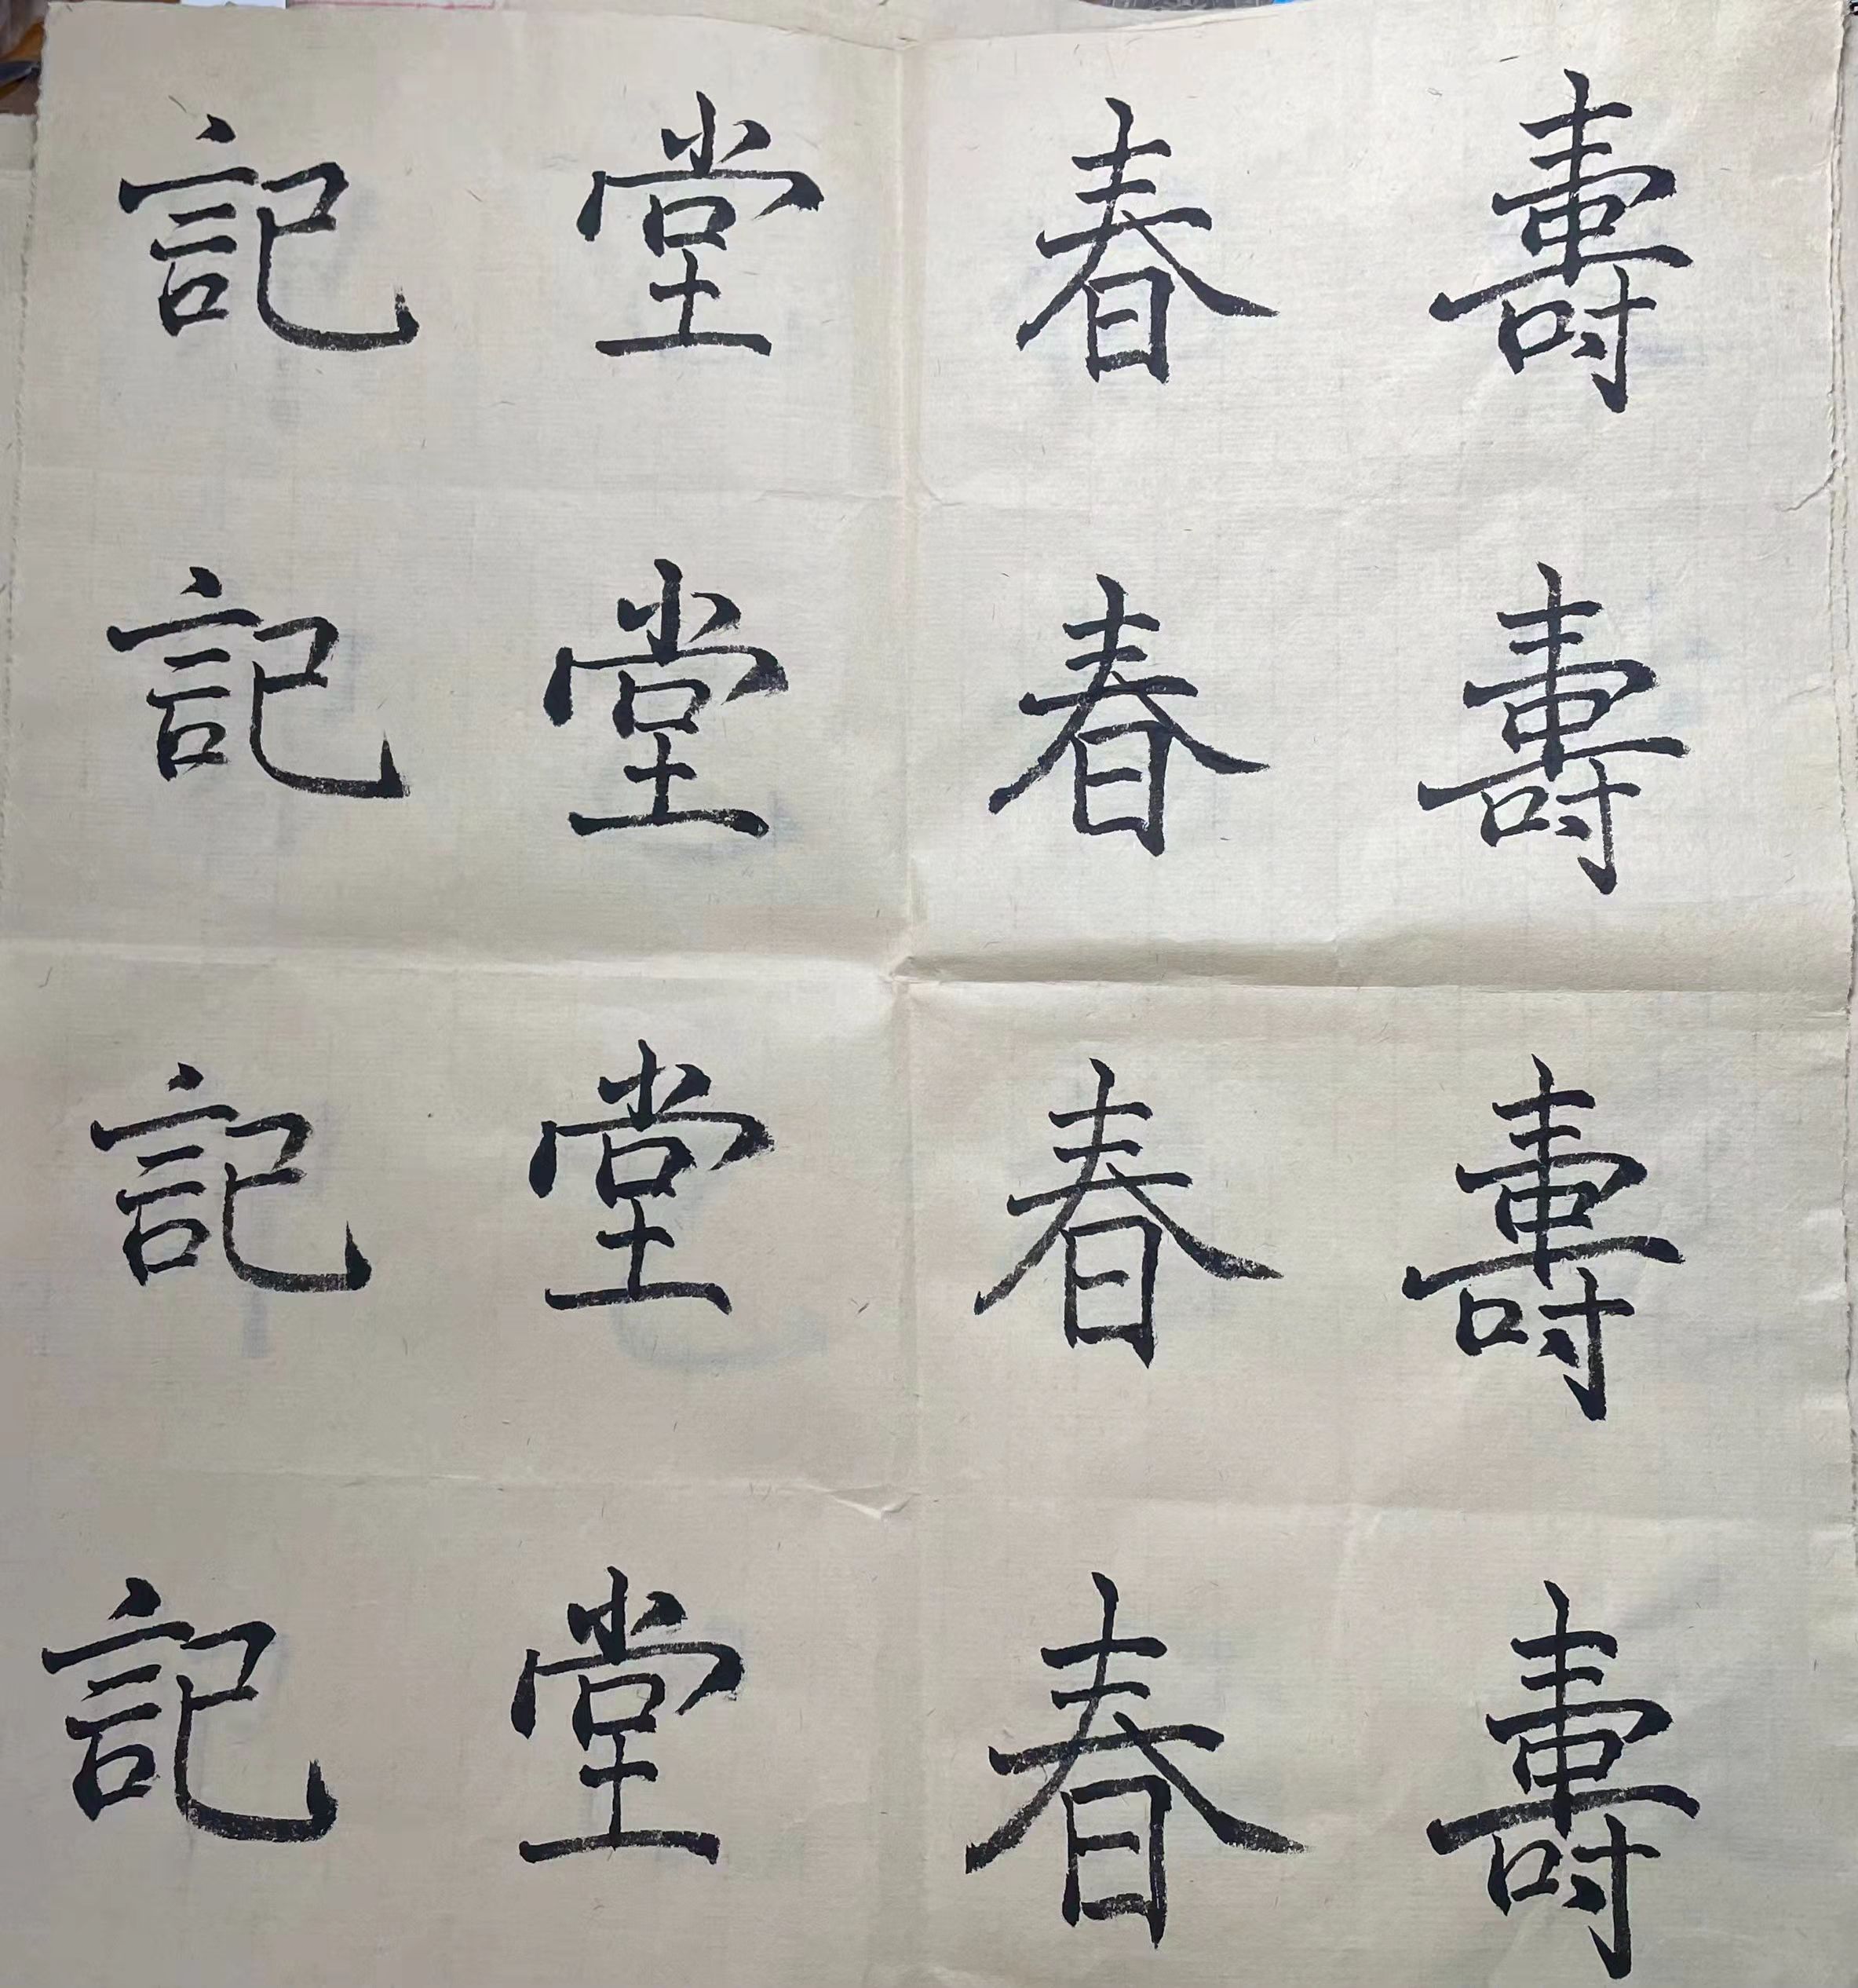 壽春堂記
壽春堂記
壽春堂記
壽春堂記